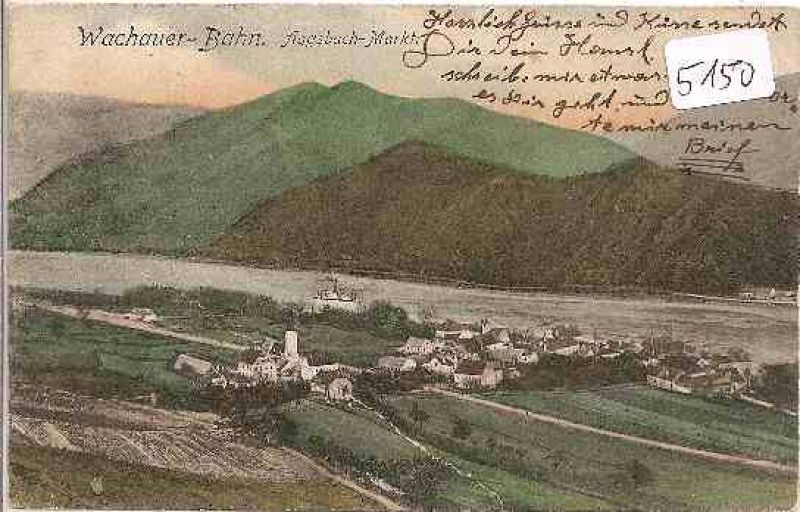 Wachauer-Bahn. Aggsbach-Markt.
Herzlich Grüsse und Küsse sendet
Dir Dein Hansl
schreibe mir etwas
es Dir geht, und
te mir meinen
Brief
5150